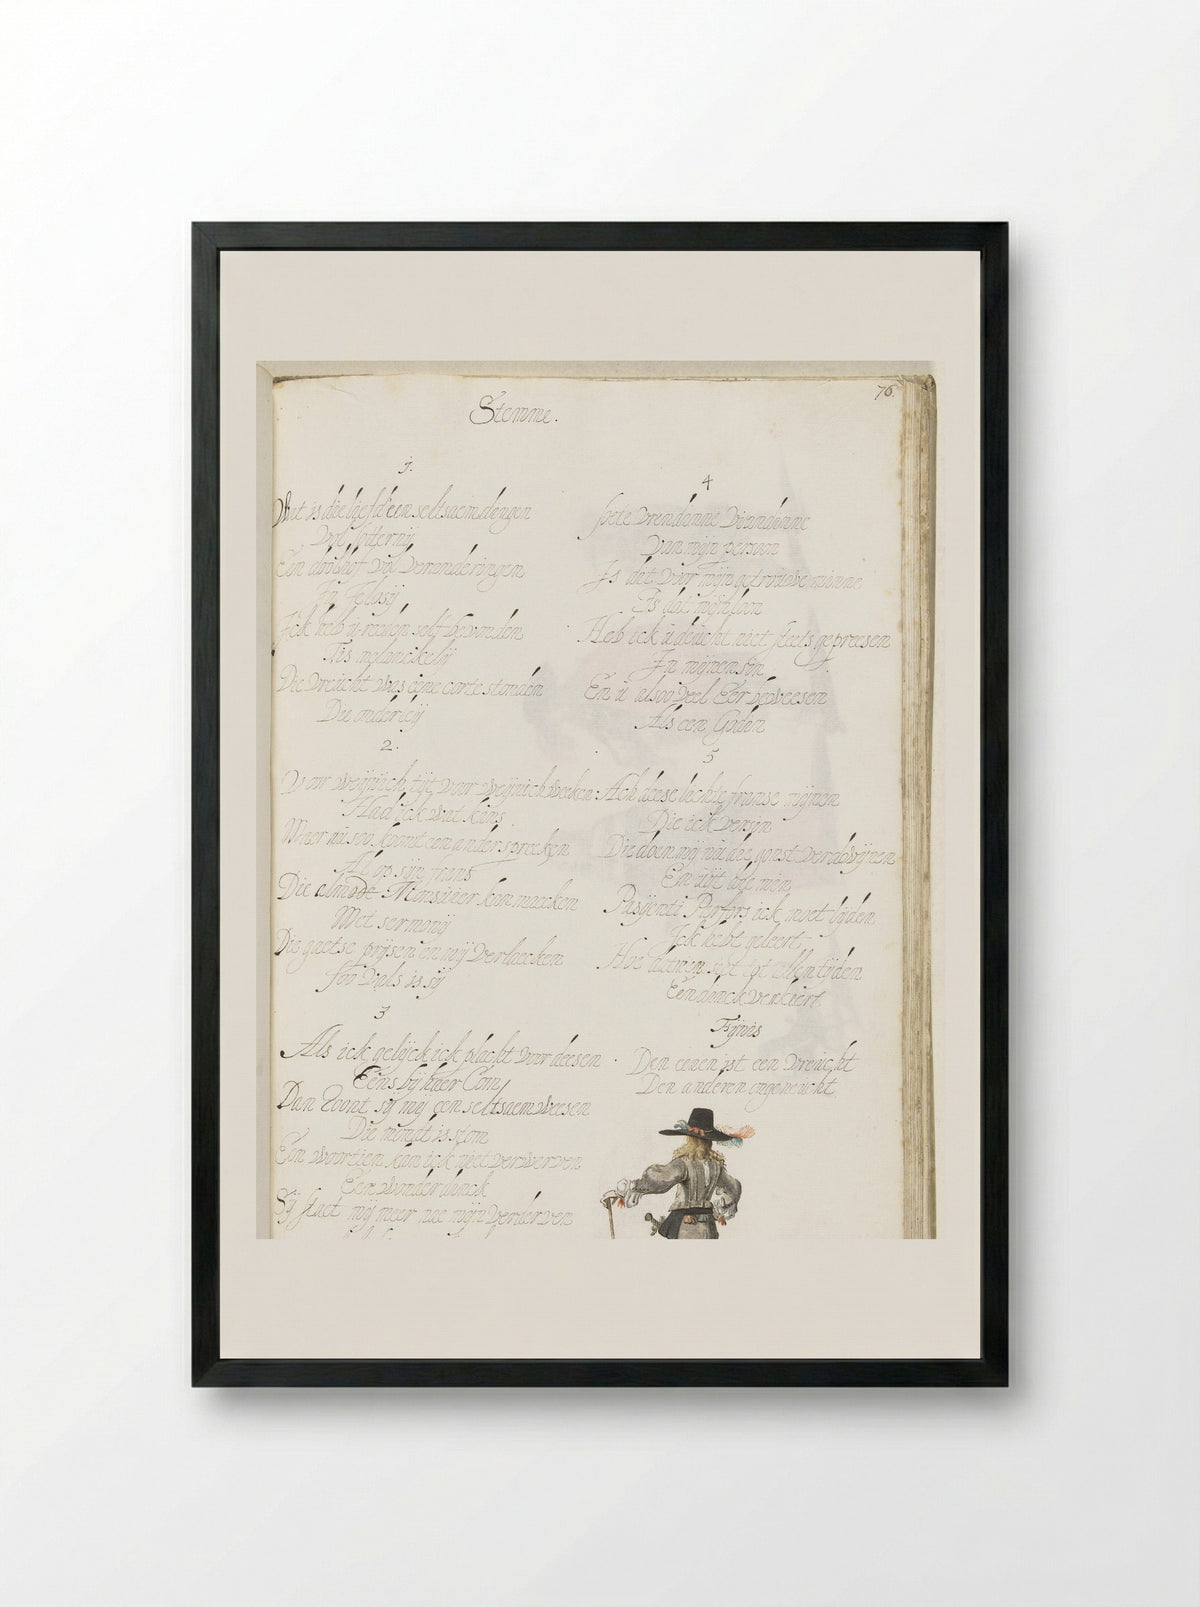 76.
Stemme.
1.
Wat is die liefd een seltsaem dengen
Vol
Een doolhof vol veranderingen
In Jelosij
Ick heb u reeden self bevonden
Tis melanckelij
Die vreucht was eene corte stonden
Die onder leij
2.
Voor weijnich tijt voor weijnich weeken
Had ick wat kans
Maer nu soo komt een ander spreeken
Al op sijn frans
Die almode Monsuieer kan maecken
Met sermonij
Die gaetse prijsen en mij verlaecken
soo vals is sij
3
Als ick gelijck ick placht voor deesen
Eens bij haer Com
Dan toont sij mij een seltsaem weesen
Die mondt is stom
Een woortien kan ick niet verwerven
Een wonder dinck
Sij my meer nae mijn
4
van mijn persoon
Is dat voor mijn getrouwe minne
Is dat mijn loon
Heb ick u deucht niet steets gepreesen
In mijnen sin
En u alsoo veel Eer beweesen
Als een Godin
5
Ach deese lichte franse mijnen
Die ick versin
Die doen mij nu dee gonst verdwijnen
En uijt mijn
Pasijenti ick moet lijden
Ick hebt geleert
Hoe siet tot allen tijden
Een dinck verkeert
Fijnis
Den eenen ist een vreucht
Den anderen ongeneucht